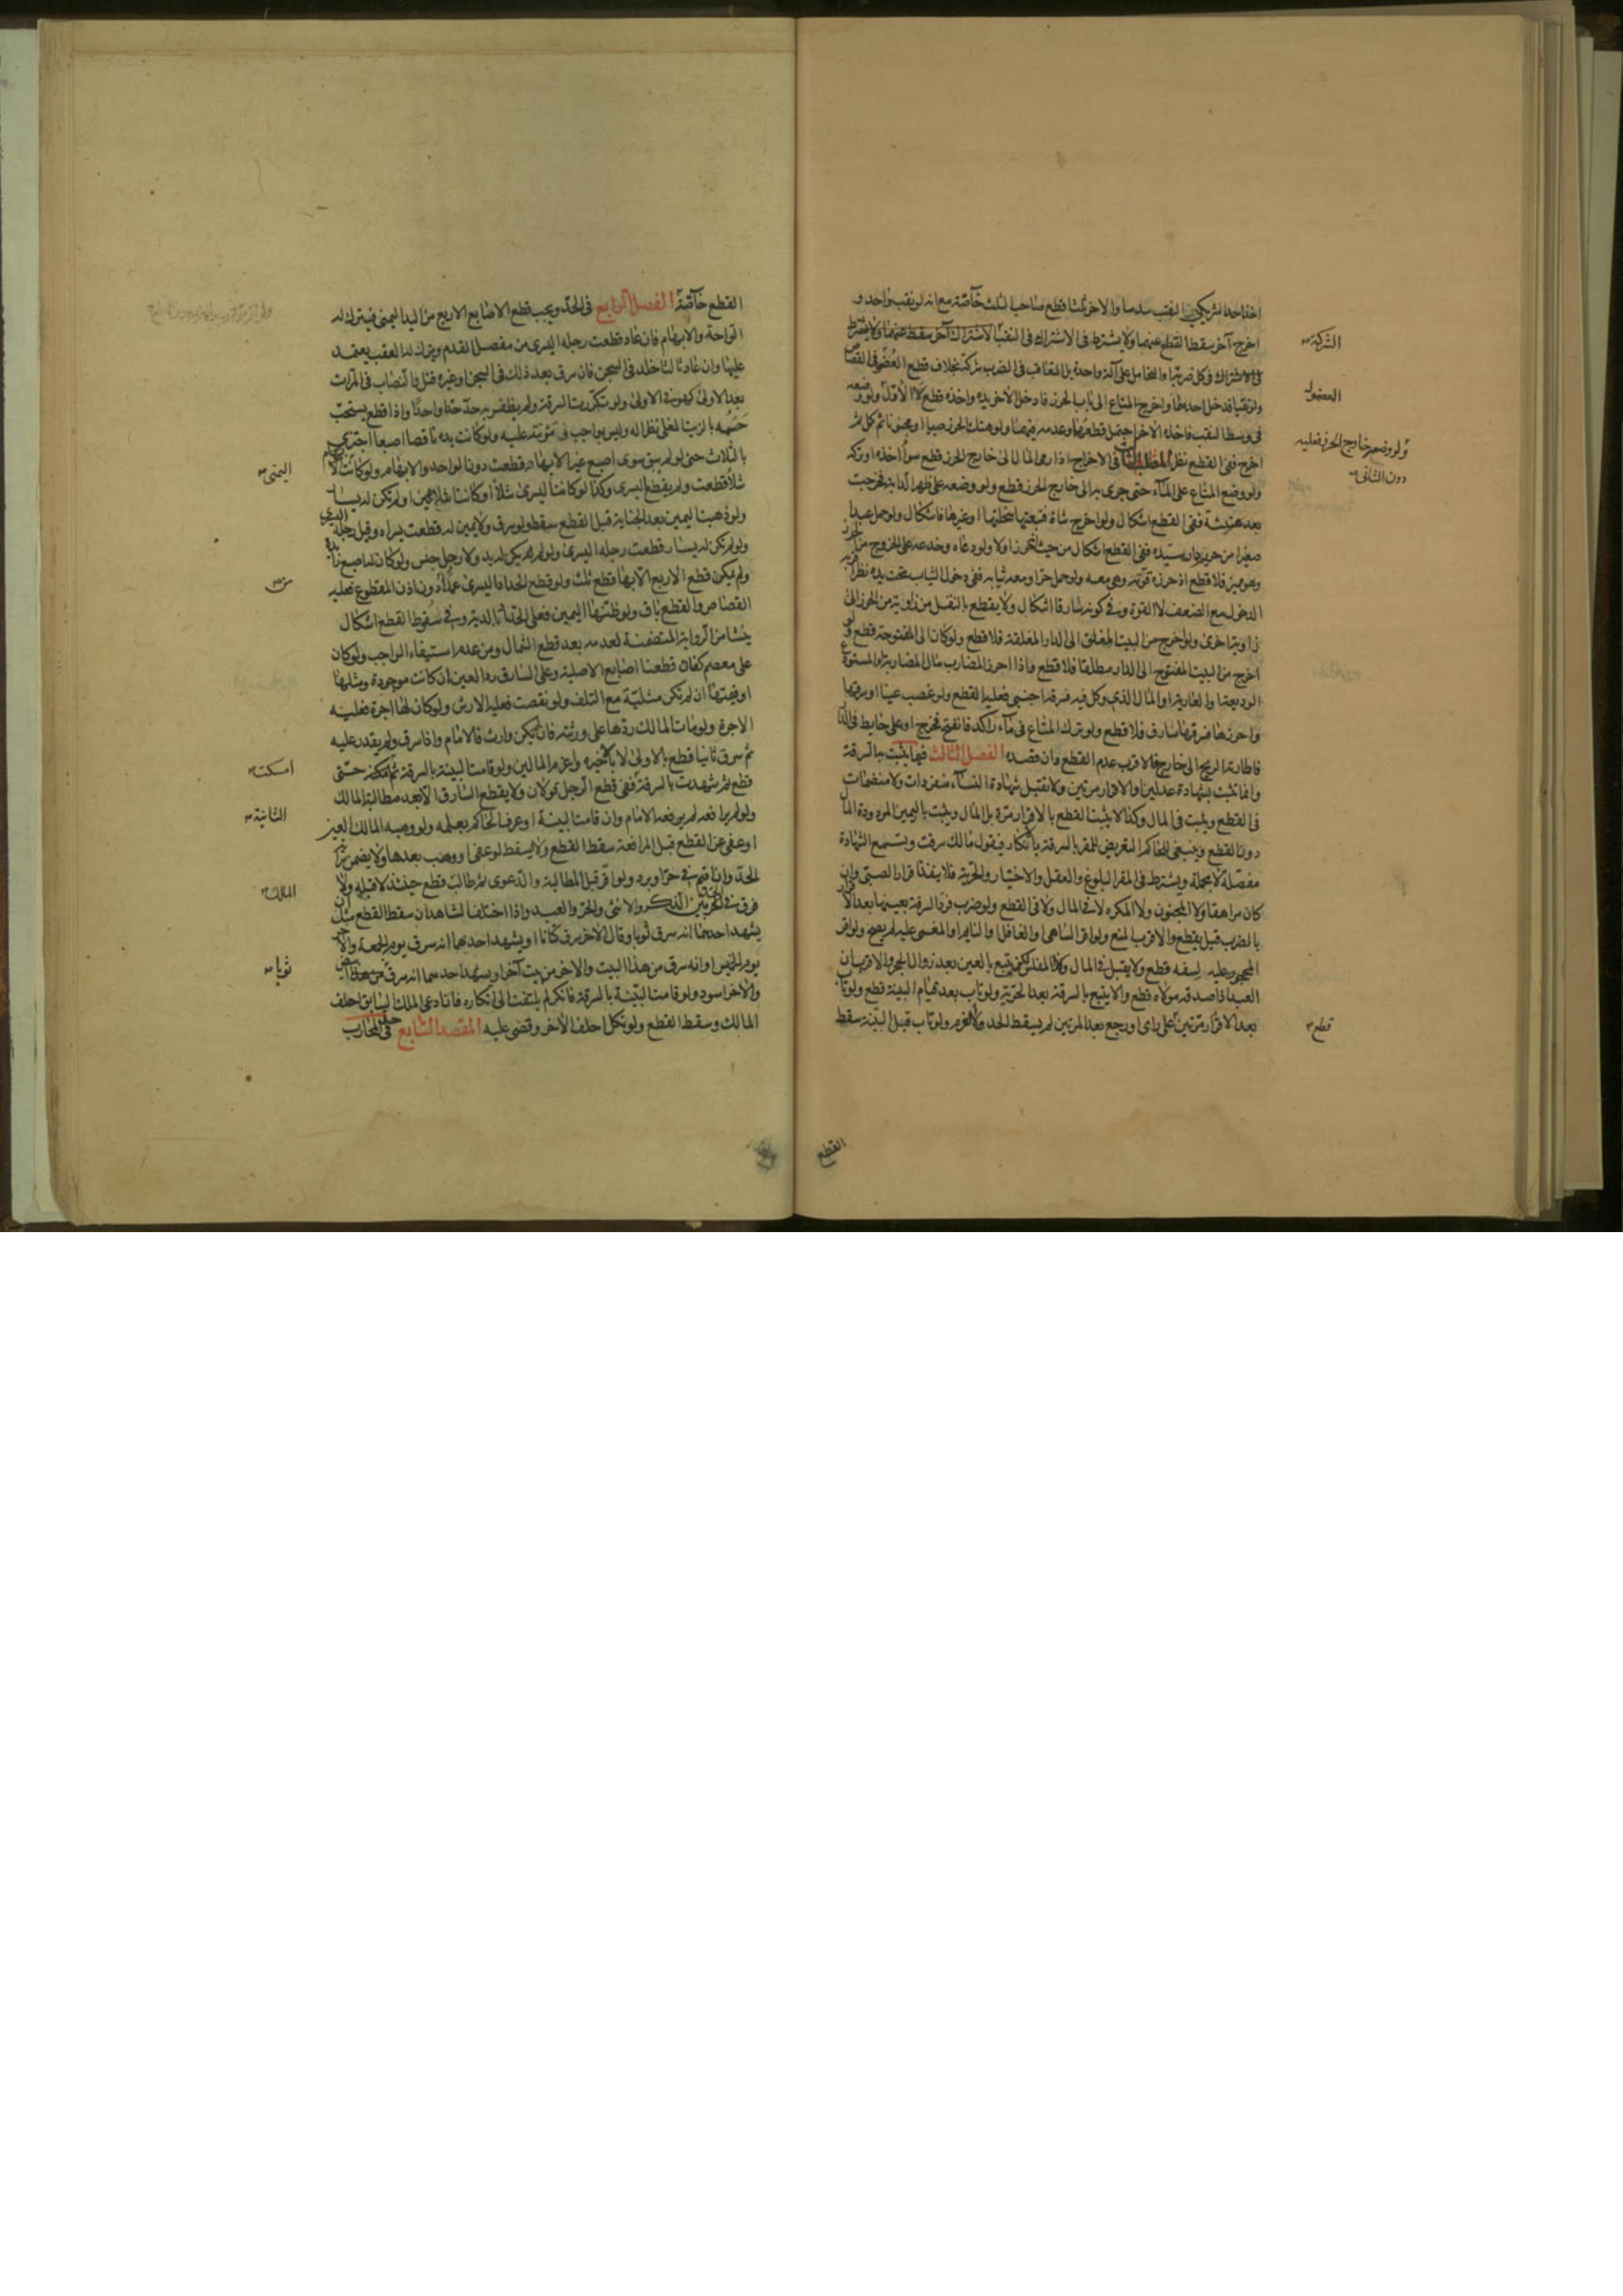 اخذ احد الشريكين في النقب سدسا والاخر ثلثا قطع صاحب الثلث خاصة مع انه لو نقب واحد و
اخرج آخر سقط القطع عنهما ولا يشترط في الاشتراك في النقب الاشتراك
في كل ضربة والتحامل على آلة واحدة بل التعاقب في الضرب شركة بخلاف قطع العضو في القصاص
ولو نقبا فدخل احدهما واخرج المتاع الى باب الحرز فادخل الآخر يده واخذه قطع دون الاول ولو وضعه
في وسط النقب فاخذه الآخر احتمل قطعهما وعدمه فيهما ولو هتك الحرز صبيا او مجنونا ثم كمل ثم
اخرج ففي القطع نظر المطلب الثالث في الاخراج اذا رمى المال الى خارج الحرز قطع سواء اخذه او تركه
ولو وضع المتاع على الماء حتى جرى به الى خارج الحرز قطع ولو وضعه على ظهر الدابة فخرجت
بعد هنيئة ففي القطع اشكال ولو اخرج شاة فتبعتها سخلتها او غيرها فاشكال ولو حمل عبدا
صغيرا من حريم دار سيده ففي القطع اشكال من حيث انه حرز اولا ولو دعاه وخدعه على الخروج من الحرز
وهو مميز فلا قطع اذ حرزه قوته وهي معه ولو حمل حرا ومعه ثيابه ففي دخول الثياب تحت يده نظر
الدخول مع الضعف لا القوة وفي كونه سارقا اشكال ولا يقطع بالنقل من زاوية من الحرز الى
زاوية اخرى ولو اخرج من البيت المغلق الى الدار المغلقة فلا قطع ولو كان الى المفتوحة قطع ولو
اخرج من البيت المفتوح الى الدار مطلقا فلا قطع واذا احرز المضارب مال المضاربة او المستودع
الوديعة او العارية او المال الذي وكل فيه فسرقه اجنبي فعليه القطع ولو غصب عينا او سرقها
واحرزها فسرقها سارق فلا قطع ولو ترك المتاع في ماء راكد فانفتح فخرج او على حايط في الدار
فاطارته الريح الى خارج فالاقرب عدم القطع وان قصده الفصل الثالث فيما يثبت به السرقة
وانما تثبت بشهادة عدلين او الاقرار مرتين ولا تقبل شهادة النساء منفردات ولا منضمات
في القطع ويثبت في المال وكذا لا يثبت القطع بالاقرار مرة بل المال ويثبت باليمين المردودة المال
دون القطع وينبغي للحاكم التعريض للمقر بالسرقة بالانكار فيقول ما اخالك سرقت وتسمع الشهادة
مفصلة لا مجملة ويشترط في المقر البلوغ والعقل والاختيار والحرية فلا ينفذ اقرار الصبي وان
كان مراهقا ولا المجنون ولا المكره لا في المال ولا في القطع ولو ضرب فرد السرقة بعينها بعد الاقرار
بالضرب قيل يقطع والاقرب المنع ولو اقر الساهي او الغافل او النايم او المغمى عليه لم يصح ولو اقر
المحجور عليه لسفه قطع ولا يقبل في المال وكذا المفلس لكن يتبع بالعين بعد زوال الحجر والاقرب ان
العبد اذا صدقه مولاه قطع والا يتبع بالسرقة بعد الحرية ولو تاب بعد قيام البينة قطع ولو تاب
بعد الاقرار مرتين على راى او رجع بعد المرتين لم يسقط الحد ولا الغرم ولو تاب قبل البينة سقط
الشركة
المعقول
ولو وضعه خارج الحرز فعليه
دون الثاني
قطع
القطع
القطع خاصة الفصل الرابع في الحد ويجب قطع الاصابع الاربع من اليد اليمنى ويترك له
الراحة والابهام فان عاد قطعت رجله اليسرى من مفصل القدم ويترك له العقب يعتمد
عليها وان عاد ثالثا خلد في السجن فان سرق بعد ذلك في السجن او غيره قتل والنصاب في المرات
بعد الاولى كهو في الاولى ولو تكررت السرقة ولم يظفر به حد حدا واحدا واذا قطع يستحب
حسمه بالزيت المغلى نظرا له وليس بواجب فمؤنته عليه ولو كانت يده ناقصة اصبعا اجتزئ
بالثلاث حتى لو لم يبق سوى اصبع غير الابهام قطعت دون الواحد والابهام ولو كانت
شلاء قطعت ولم يقطع اليسرى وكذا لو كانت اليسرى شلاء او كانتا شلاوين او لم تكن له يسار
ولو ذهبت اليمين بعد الجناية قبل القطع سقط ولو سرق ولا يمين له قطعت يسراه وقيل رجله اليسرى
ولو لم تكن له يسار قطعت رجله اليسرى ولو لم يكن له يد ولا رجل حبس ولو كان له اصبع زايدة
ولم يمكن قطع الاربع الا بها قطع ثلث ولو قطع الحداد اليسرى عمدا دون اذن المقطوع فعليه
القصاص والقطع باق ولو ظنها اليمين فعلى الحداد الدية وفي سقوط القطع اشكال
ينشا من الرواية المتضمنة لعدمه بعد قطع الشمال ومن عدم استيفاء الواجب ولو كان
على معصم كفان قطعنا اصابع الاصلية وعلى السارق رد العين ان كانت موجودة ومثلها
او قيمتها ان لم تكن مثلية مع التلف ولو نقصت فعليه الارش ولو كان لها اجرة فعليه
الاجرة ولو مات المالك ردها على ورثته فان لم يكن وارث فالامام واذا سرق ولم يقدر عليه
ثم سرق ثانيا قطع بالاولى لا بالاخيرة واغرم المالين ولو قامت البينة بالسرقة ثم امسكت حتى
قطع ثم شهدت بالسرقة ففي قطع الرجل قولان ولا يقطع السارق الا بعد مطالبة المالك
ولو لم يرافعه لم يرفعه الامام وان قامت البينة او عرف الحاكم بعلمه ولو وهبه المالك العين
او عفى عن القطع قبل المرافعة سقط القطع ولا يسقط لو عفى او وهب بعدها ولا يضمن سراية
الحد وان اقيم في حر او برد ولو اقر قبل المطالبة والدعوى ثم طالب قطع حينئذ لا قبله ولا
فرق في الحد بين الذكر والانثى والحر والعبد واذا اختلف الشاهدان سقط القطع مثل ان
يشهد احدهما انه سرق ثوبا وقال الآخر سرق كتانا او يشهد احدهما انه سرق يوم الجمعة والآخر
يوم الخميس او انه سرق من هذا البيت والآخر من بيت آخر او يشهد احدهما انه سرق ابيض
والآخر اسود ولو قامت البينة بالسرقة فانكر لم يلتفت الى انكاره فان ادعى الملك السابق احلف
المالك وسقط القطع ولو نكل احلف الآخر وقضى عليه المقصد السابع في المحارب
اليمنى
امسكت
الثانية
المالك
ثوبا